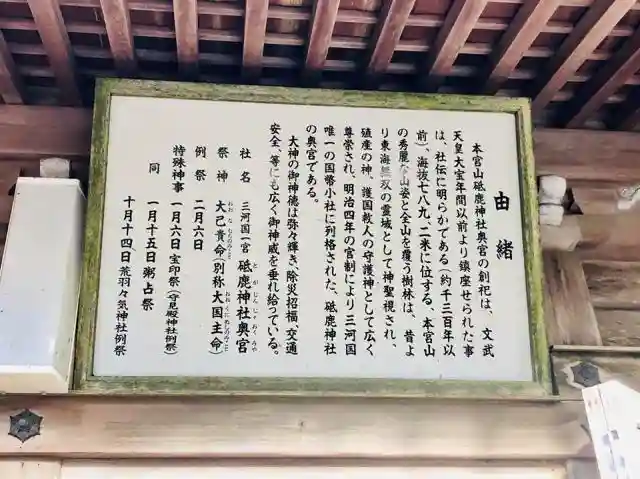 由緒
本宮山砥鹿神社奥宮の創祀は、文武
天皇大宝年間以前より鎮座せられた事
は、社伝に明らかである(約千三百年以
前)、海抜七八九、二米に位する、本宮山
の秀麗な山姿と全山を覆う樹林は、昔よ
り東海無双の霊域として神聖視され、
殖産の神、護国救人の守護神として広く
尊崇され、明治四年の官制により三河国
唯一の国幣小社に列格された、砥鹿神社
の奥宮である。
大神の御神徳は弥々輝き、除災招福、交通
安全、等にも広く御神威を垂れ給っている。
社名 三河国一宮 砥鹿神社奥宮 とがじんじゃおくのみや
祭神 大己貴命 おおなむちのみこと (別称 大国主命) おおくにぬしのみこと
例祭 二月六日
特殊神事 一月六日 宝印祭(守見殿神社例祭)
同 一月十五日 粥占祭
十月十四日 荒羽々気神社例祭